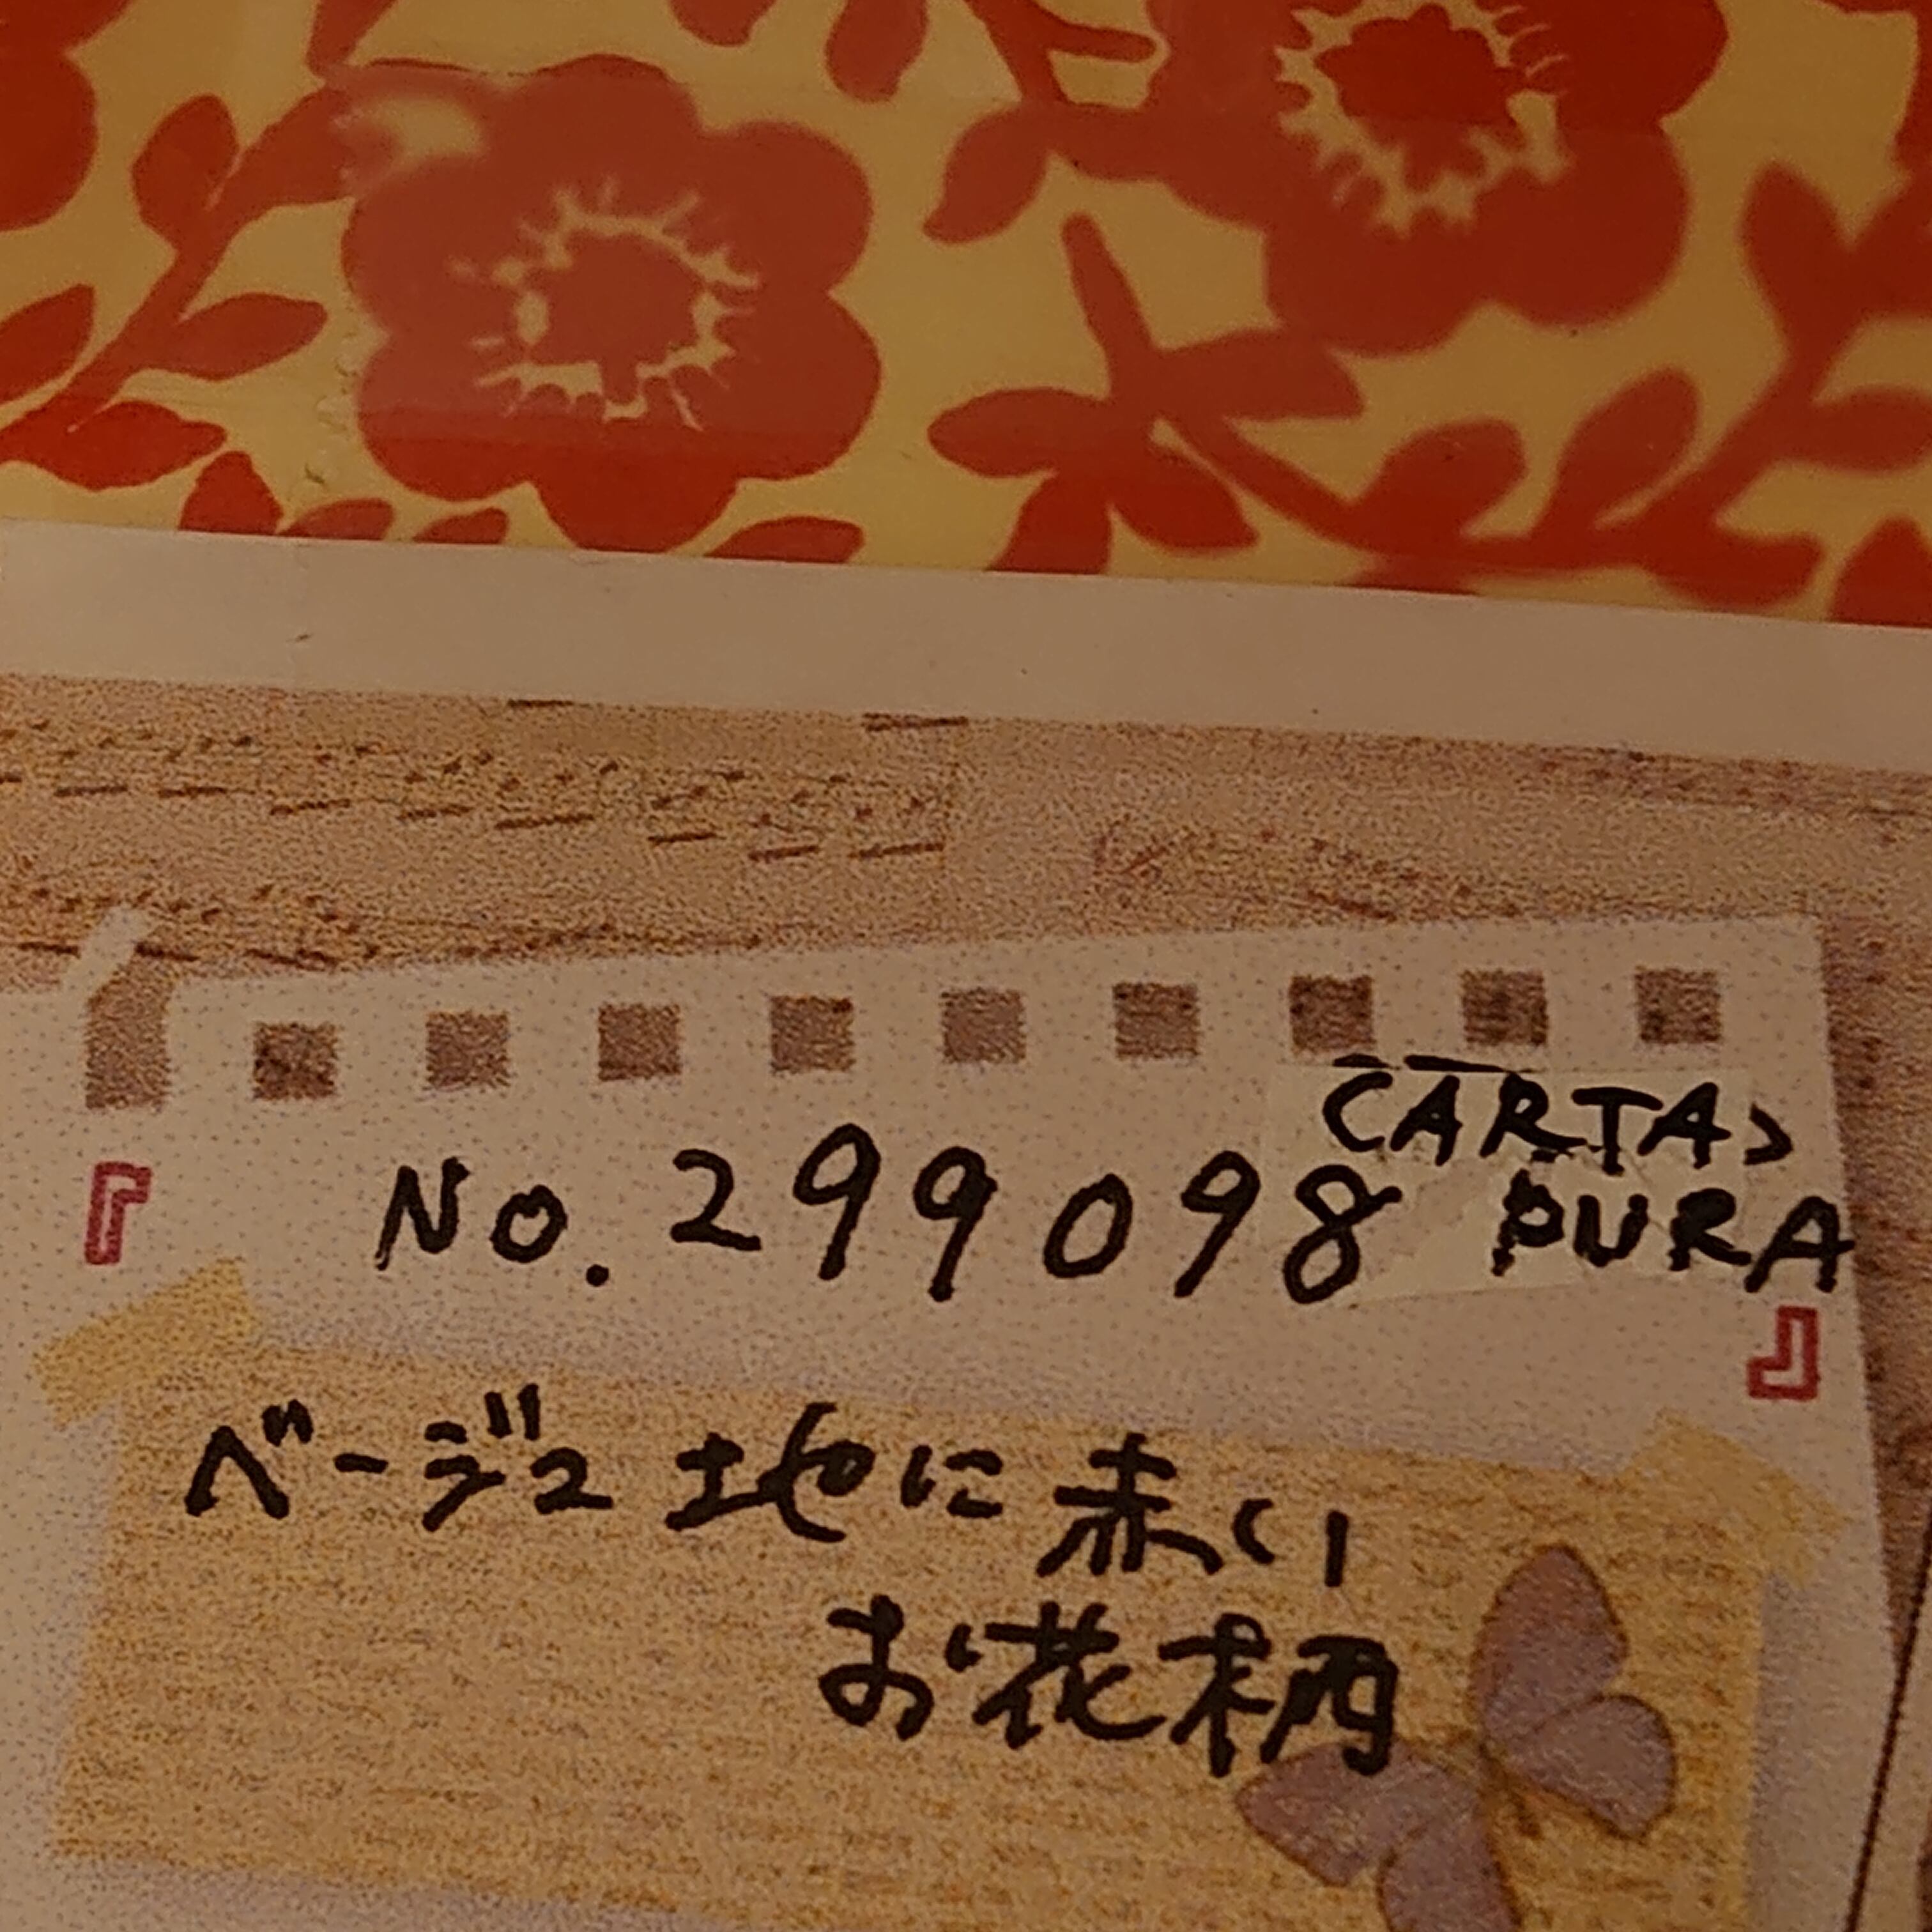 『 No. 299098 CARTA
PURA 』
ベージュ地に赤い
お花柄